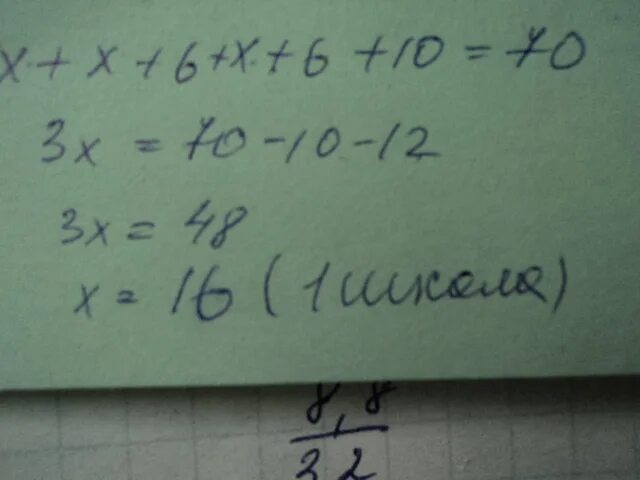 x + x + 6 + x + 6 + 10 = 70
3x = 70 - 10 - 12
3x = 48
x = 16 (1 школа)
8,8
32